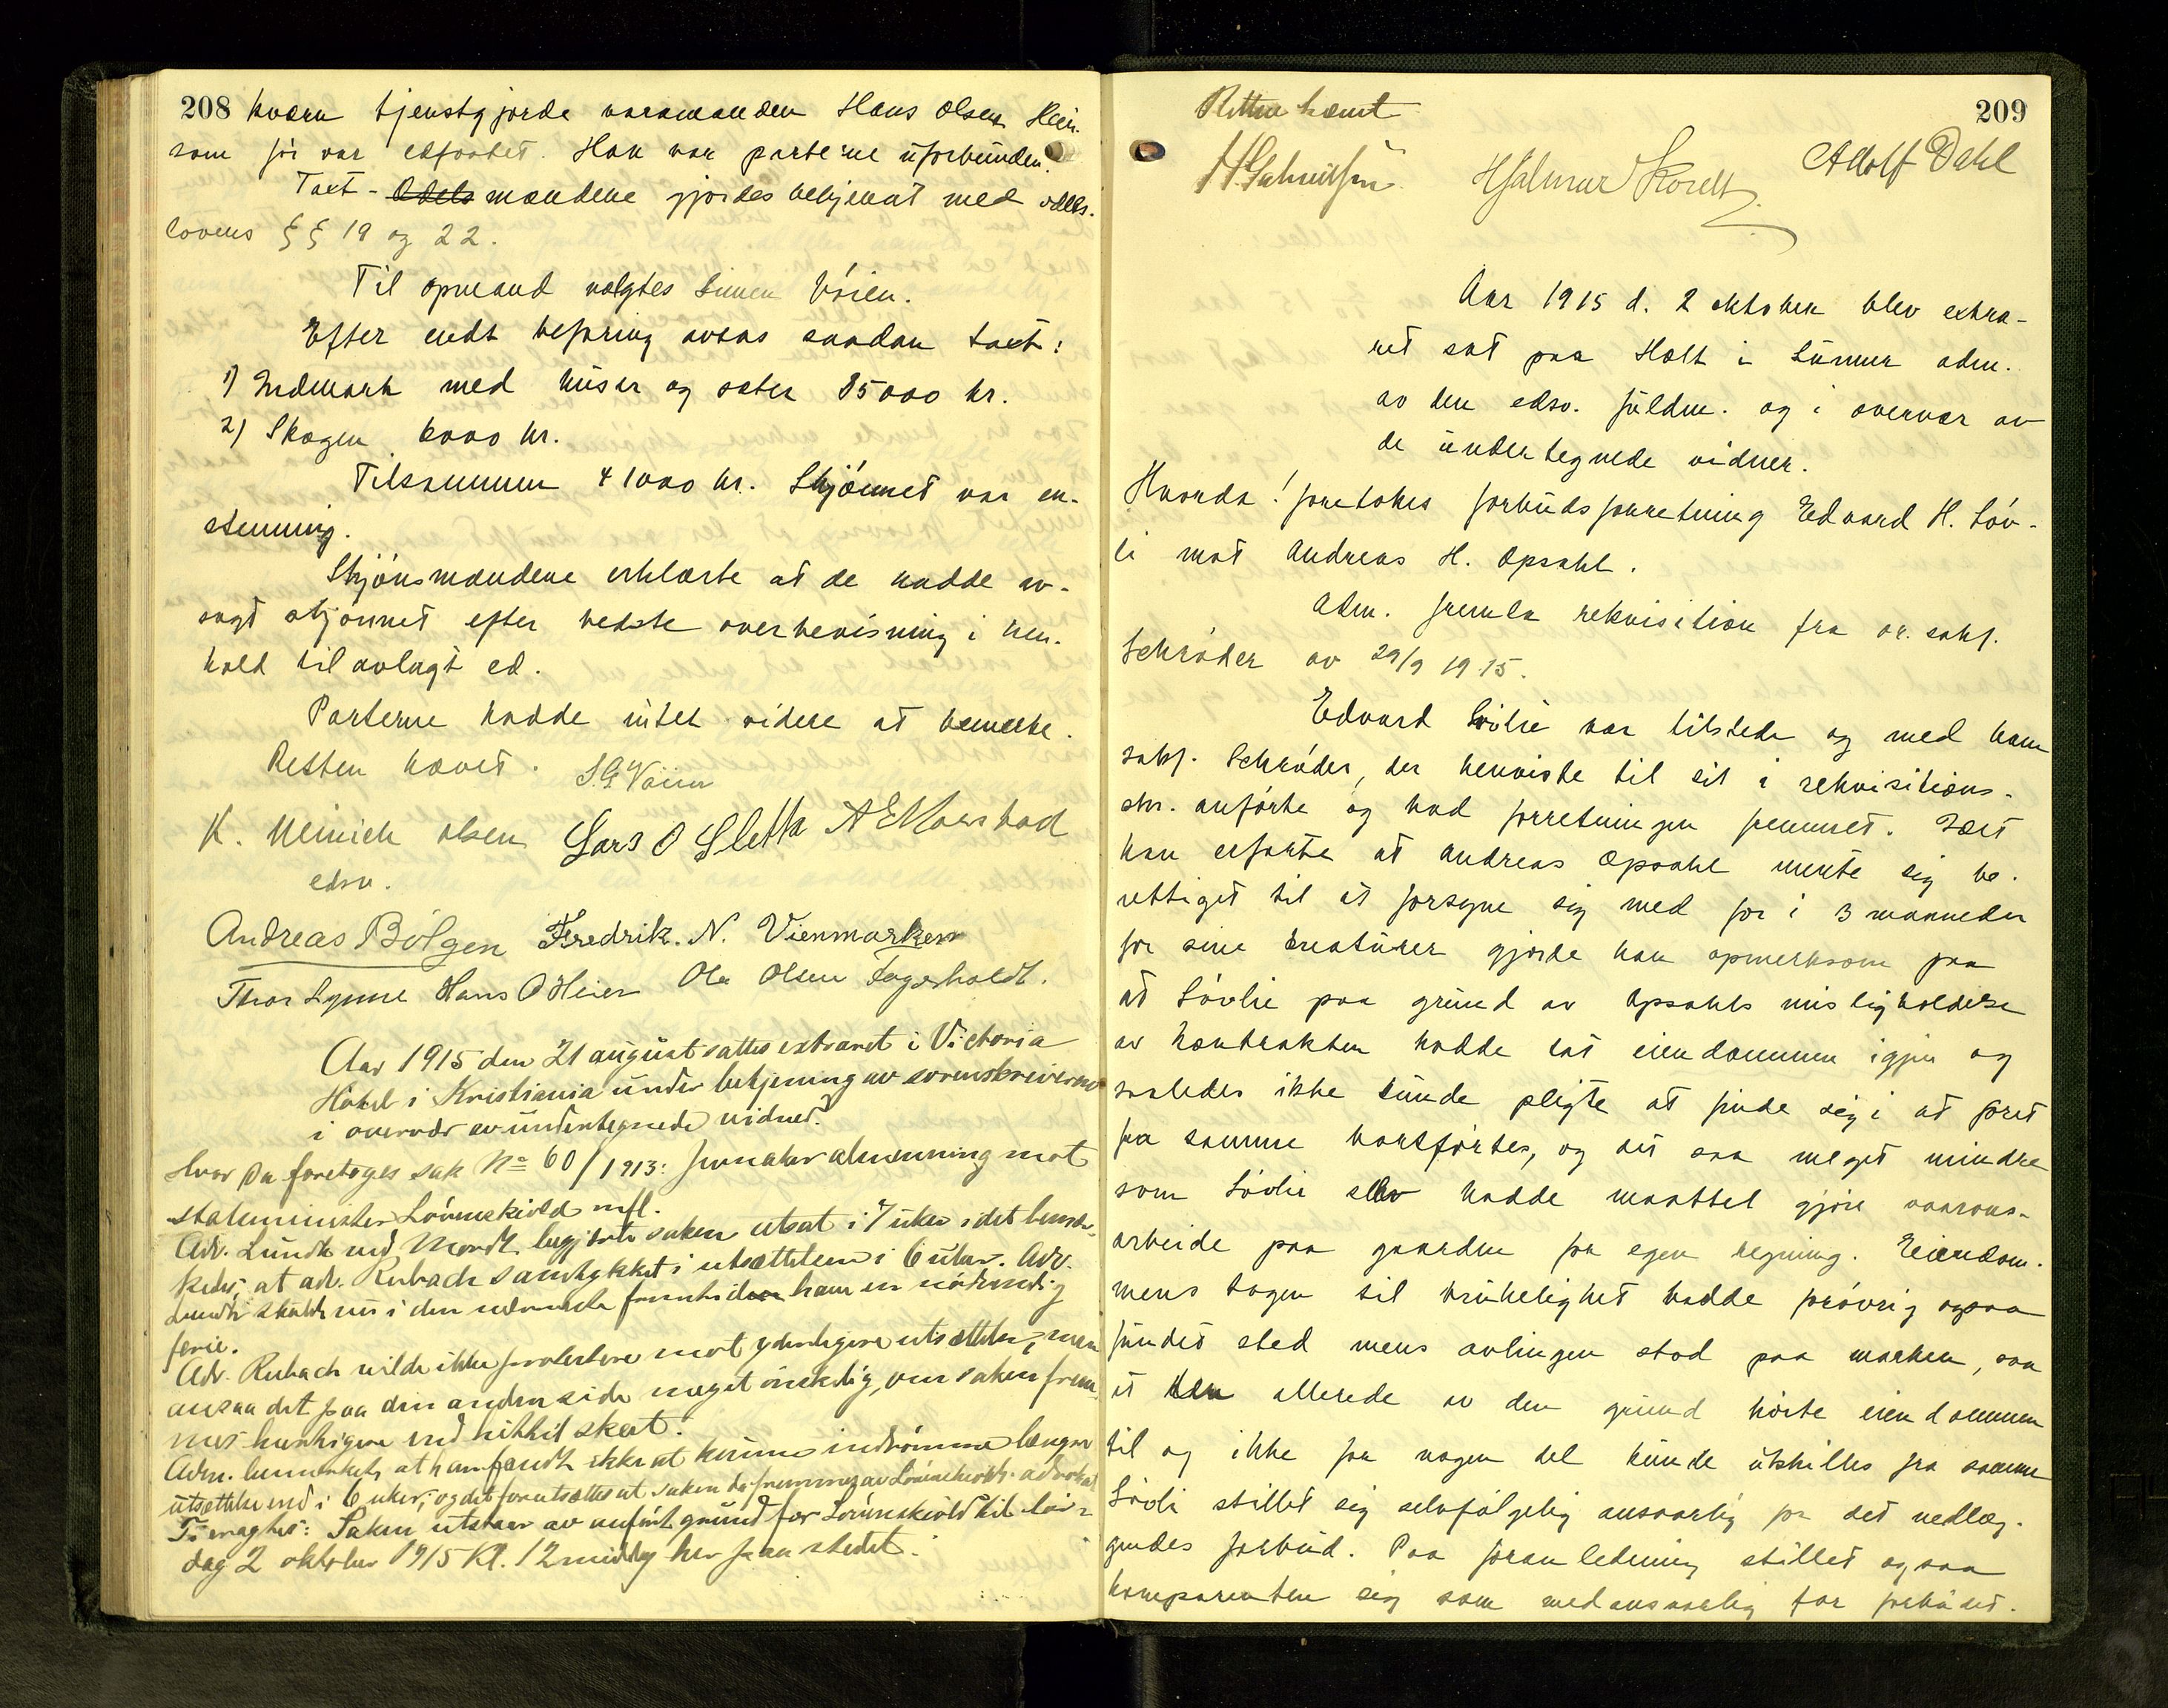 208 tjenstgjorde varamanden Hans Olsen Heier
som før var edfæstet. Han var parterne uforbunden.
Taxt-Odelsmændene gjordes bekjent med odels-
lovens §§ 19 og 22.
Til opmand valgtes Simen Vøien.
Efter endt befaring avgas saadan taxt:
1) Indmark med huser og sæter 35000 kr.
2) Skogen 6000 kr.
Tilsammen 41000 kr. Skjønnet var en-
stemmig.
Skjønsmændene erklærte at de hadde av-
sagt skjønnet efter bedste overbevisning i hen-
hold til avlagt ed.
Parterne hadde intet videre at bemerke.
Retten hævet. S. G. Vøien
K. Meinich Olsen Lars O Sletta A E Moerstad
edsv.
Andreas Bølgen Fredrik. N. Vienmarken
Thor Lynne Hans O Heier Ole Olsen Fagerholdt.
Aar 1915 den 21 august sattes extraret i Victoria
Hotel i Kristiania under betjening av sorenskriveren
i overvær av undertegnede vidner.
Hvor da foretoges sak No 60/1913: almenning mot
statsminister Løvenskiold mfl.
Adv. Lundh ved Mordt begjærte saken utsat i 7 uker idet bemær-
kedes, at adv. Rubach samtykket i utsættelsen i 6 uker. Adv.
Lundh skulde nu i den nærmeste fremtid have en nødvendig
ferie.
Adv. Rubach vilde ikke protestere mot yderligere utsættelse, men
ansaa det paa den anden side meget ønskelig, om saken frem-
mes hurtigere end hittil skeet.
Adm. bemerket, at han fandt ikke at kunne indrømme længer
utsættelse end i 6 uker, og det forutsættes at saken da fremmes av Løvenskiolds advokat
Ti eragtes: Saken utstaar av anført grund for Løvenskiold til lør-
dag 2 oktober 1915 Kl. 12 middag her paa stedet.
Retten hævet 209
Hjalmar Adolf Dahl
Aar 1915 d. 2 oktober blev extra-
ret sat paa Holt i Lunner adm.
av den edsv. fuldm. og i overvær av
de undertegnede vidner.
Hvorda! foretokes forbudsforretning Edvard H. Løv-
li mot Andreas H. Opsahl.
Adm. fremla rekvisition fra or. sakf.
Schrøder av 29/9 1915.
Edvard Løvlie var tilstede og med ham
sakf. Schrøder, der henviste til sit i rekvisitions-
skr. anførte og bad forretningen fremmet. Idet
han erfarte at Andreas Opsahl mente sig be-
rettiget til at forsyne sig med for i 3 maaneder
for sine kreaturer gjorde han opmerksom paa
at Løvlie paa grund av Opsahls misligholdelse
av kontrakten hadde tat eiendommen igjen og
saaledes ikke kunde pligte at finde sig i at foret
fra samme bortførtes, og det saa meget mindre
som Løvlie selv hadde maattet gjøre vaarons-
arbeide paa gaarden for egen regning. Eiendom-
mens tagen til brukelighet hadde forøvrig ogsaa
fundet sted mens avlingen stod paa marken, saa
at den allerede av den grund hørte eiendommen
til og ikke for nogen del kunde utskilles fra samme
Løvli stillet sig selvfølgelig ansvarlig for det nedlæg-
gendes forbud. Paa foranledning stillet ogsaa
komparenten sig som medansvarlig for forbudet.